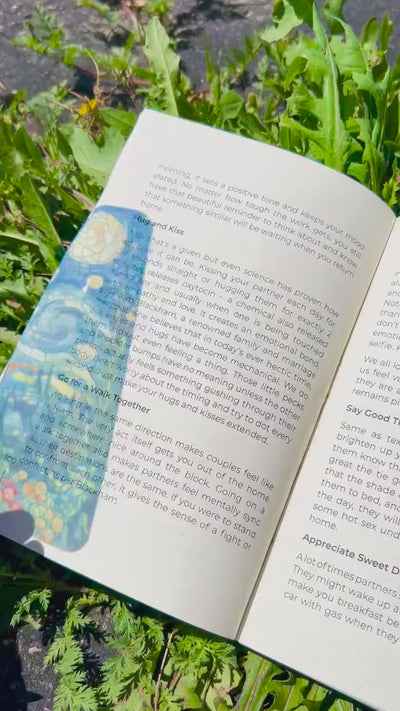 morning, it sets a positive tone and keeps your mood
elated. No matter how tough the work gets, you still
have that beautiful reminder to think about and know
that something similar will be waiting when you return
home.
Hug and Kiss
that's a given but even science has proven how
it can be. Kissing your partner each day, for
seconds straight or hugging them for exactly 2
releases oxytocin – a chemical also released
and usually when one is being touched
and love, it creates an emotional bond.
Blackham, a renowned family and marriage
believes that in today's ever hectic time,
and hugs have become mechanical. We do
even feeling a thing. Those little pecks
bumps have no meaning unless the other
feels something gushing through their
about the timing and try to dot every
second make your hugs and kisses extended.
Go for a Walk Together
Walking in the same direction makes couples feel like
a team. The very act itself gets you out of the home
to somewhere nice around the block. Going on a
walk together also makes partners feel mentally sync
as their destinations are the same. If you were to stand
to confront each other, it gives the sense of a fight or
log conflict, as per Blackham.
and
Not
them
don't
emotio
selfie.
We all lo
us feel v
they are a
remains pl
Say Good Ti
Same as tex
brighten up y
them know tha
great the tie g
that the shade
them to bed, and
the day, they will
some hot sex und
home.
Appreciate Sweet D
A lot of times partners
They might wake up a
make you breakfast be
car with gas when they